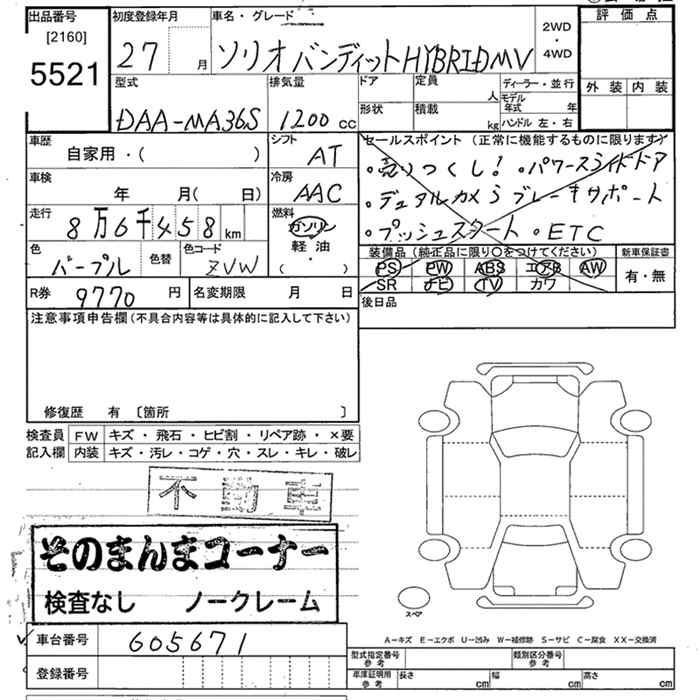 出品番号
[2160]
5521
初度登録年月
27 月
車名・グレード
ソリオバンディットHYBRID MV
2WD
・
4WD
評価点
外装 内装
型式
DAA-MA36S
排気量
1200 cc
ドア
形状
定員 人
積載 kg
ディーラー・並行
モデル年式 年
ハンドル 左・右
車歴
自家用・( )
シフト
AT
車検
年 月( 日)
冷房
AAC
走行
8万6千458 km
燃料
ガソリン
軽油
・
( )
色
パープル
色替
色コード
ZVW
R券 9770 円
名変期限 月 日
セールスポイント (正常に機能するものに限ります)
・売りつくし!・パワースライドドア
・デュアルカメラブレーキサポート
・プッシュスタート ・ETC
装備品(純正品に限り○をつけてください)
PS PW ABS エアB AW
SR ナビ TV カワ
新車保証書
有・無
後日品
注意事項申告欄(不具合内容等は具体的に記入して下さい)
修復歴 有 〔箇所 〕
検査員記入欄
FW キズ・飛石・ヒビ割・リペア跡・×要
内装 キズ・汚レ・コゲ・穴・スレ・キレ・破レ
不動車
そのまんまコーナー
検査なし ノークレーム
スペア
車台番号 605671
登録番号
A−キズ E−エクボ U−凹み W−補修跡 S−サビ C−腐食 XX−交換済
型式指定番号 参考
類別区分番号 参考
車庫証明用 参考
長さ cm 幅 cm 高さ cm